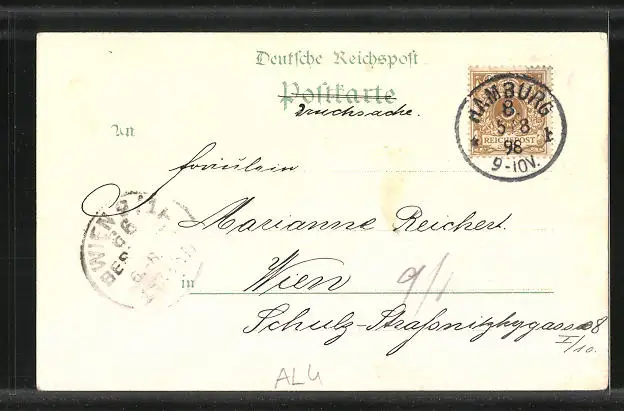 Deutsche Reichspost
Postkarte
Drucksache.
An
Fräulein
Marianne Reichert.
in Wien 9/1
Schulz-Straßnitzkygasse 8
I/10.
HAMBURG
8.
5 8
98
9-10V.
REICHSPOST
WIEN
ALU